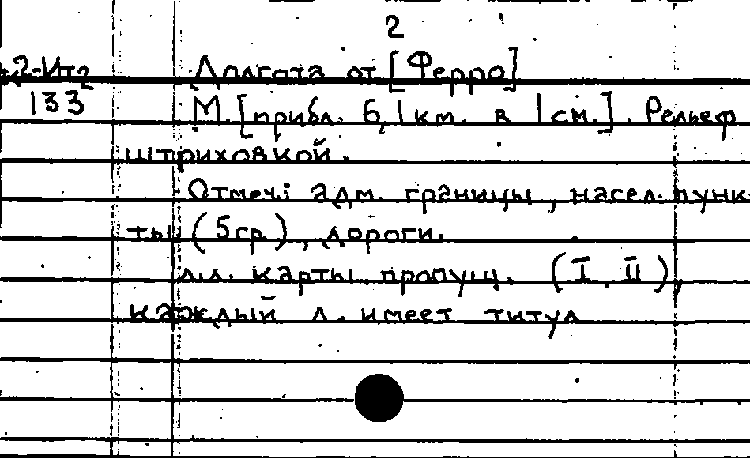 2
К2-Ит2 Долгота от [Ферро]
133 М.[прибл. 6,1 км. в 1 см.]. Рельеф
штриховкой.
Отмеч.: адм. границы, насел. пунк-
ты (5 гр.), дороги.
л.л. карты пропущ. (I, II),
каждый л. имеет титул